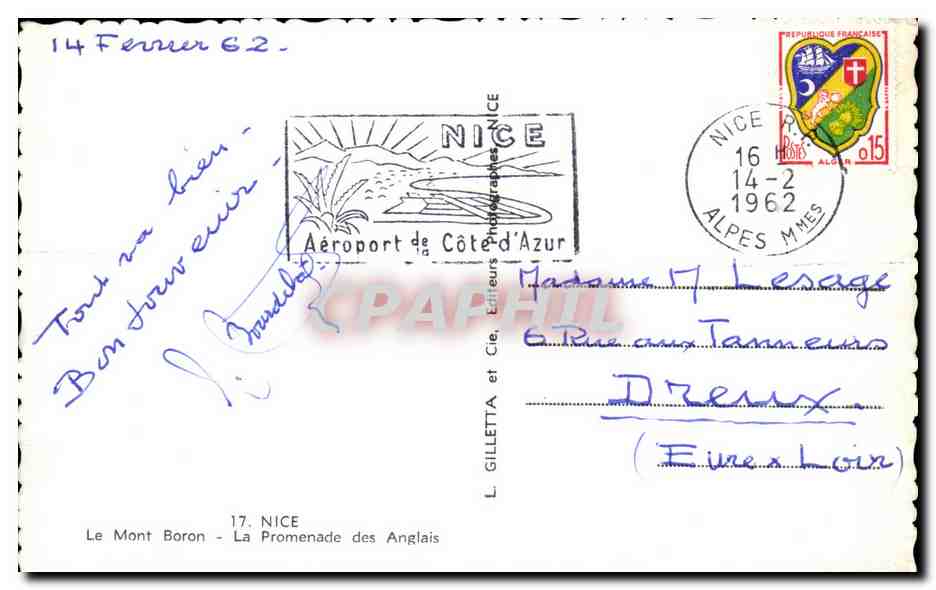 14 Fevrier 62 -
REPUBLIQUE FRANÇAISE
POSTES
ALGER
0.15
NICE R.P.
16 H
14-2
1962
ALPES MMES
NICE
Aéroport de la Côte d'Azur
Tout va bien -
Bon souvenir -
L. GILLETTA et Cie, Editeurs Photographes, NICE
CPAPHIL
Madame M. Lesage
6 Rue aux Tanneurs
Dreux.
(Eure x Loir)
17. NICE
Le Mont Boron - La Promenade des Anglais